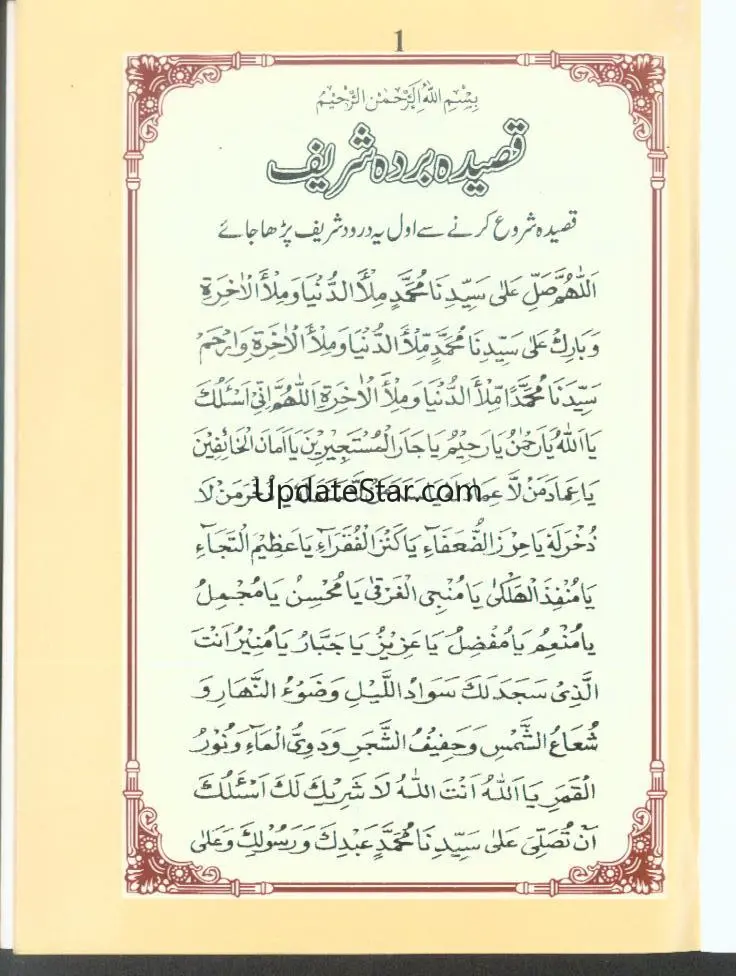 1
بِسْمِ اللّٰهِ الرَّحْمٰنِ الرَّحِيْمُ
قصیدہ بردہ شریف
قصیدہ شروع کرنے سے اول یہ درود شریف پڑھا جائے
اَللّٰهُمَّ صَلِّ عَلٰى سَيِّدِنَا مُحَمَّدٍ مِلْأَ الدُّنْيَا وَمِلْأَ الْاٰخِرَةِ
وَبَارِكْ عَلٰى سَيِّدِنَا مُحَمَّدٍ مِّلْأَ الدُّنْيَا وَمِلْأَ الْاٰخِرَةِ وَارْحَمْ
سَيِّدَنَا مُحَمَّدًا مِّلْأَ الدُّنْيَا وَمِلْأَ الْاٰخِرَةِ اَللّٰهُمَّ اِنِّىْ اَسْئَلُكَ
يَا اَللّٰهُ يَا رَحْمٰنُ يَا رَحِيْمُ يَا جَارَ الْمُسْتَجِيْرِيْنَ يَا اَمَانَ الْخَائِفِيْنَ
يَا عِمَادَ مَنْ لَّا عِمَادَ UpdateStar.com ذُخْرَ مَنْ لَا
ذُخْرَلَهٗ يَا حِرْزَ الضُّعَفَآءِ يَا كَنْزَ الْفُقَرَآءِ يَا عَظِيْمَ الْتَجَآءِ
يَا مُنْقِذَ الْهَلْكٰى يَا مُنْجِىَ الْغَرْقٰى يَا مُحْسِنُ يَا مُجْمِلُ
يَا مُنْعِمُ يَا مُفْضِلُ يَا عَزِيْزُ يَا جَبَّارُ يَا مُنِيْرُ اَنْتَ
الَّذِىْ سَجَدَ لَكَ سَوَادُ اللَّيْلِ وَضَوْءُ النَّهَارِ وَ
شُعَاعُ الشَّمْسِ وَحَفِيْفُ الشَّجَرِ وَدَوِىُّ الْمَآءِ وَنُوْرُ
الْقَمَرِ يَا اَللّٰهُ اَنْتَ اللّٰهُ لَا شَرِيْكَ لَكَ اَسْئَلُكَ
اَنْ تُصَلِّىَ عَلٰى سَيِّدِنَا مُحَمَّدٍ عَبْدِكَ وَرَسُوْلِكَ وَعَلٰى